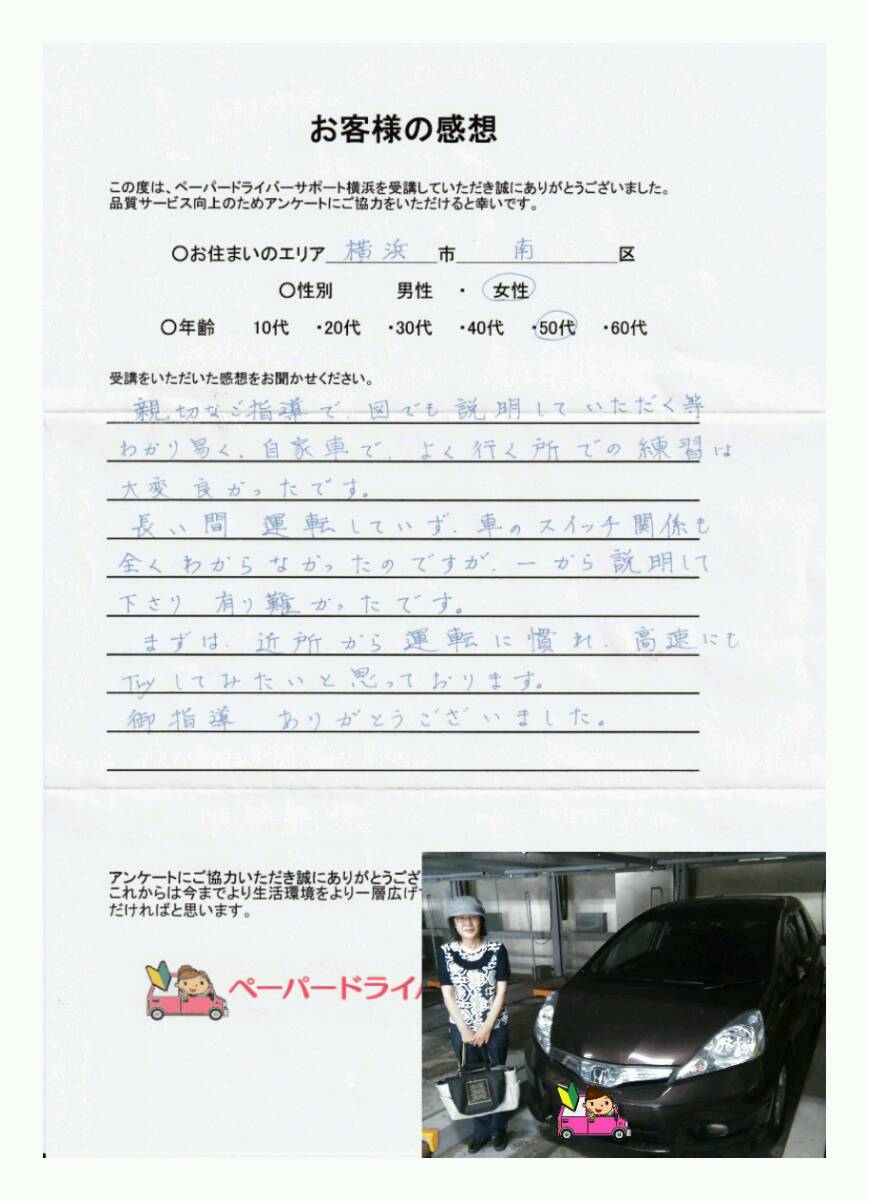 お客様の感想
この度は、ペーパードライバーサポート横浜を受講していただき誠にありがとうございました。
品質サービス向上のためアンケートにご協力をいただけると幸いです。
〇お住まいのエリア 横浜 市 南 区
〇性別 男性 ・ 女性
〇年齢 10代 ・20代 ・30代 ・40代 ・50代 ・60代
受講をいただいた感想をお聞かせください。
親切なご指導で、図でも説明していただく等
わかり易く、自家車で、よく行く所での練習は
大変良かったです。
長い間 運転していず、車のスイッチ関係も
全くわからなかったのですが、一から説明して
下さり 有り難かったです。
まずは、近所から運転に慣れ、高速にも
Tryしてみたいと思っております。
御指導 ありがとうございました。
アンケートにご協力いただき誠にありがとうござ
これからは今までより生活環境をより一層広げ
だければと思います。
ペーパードライ